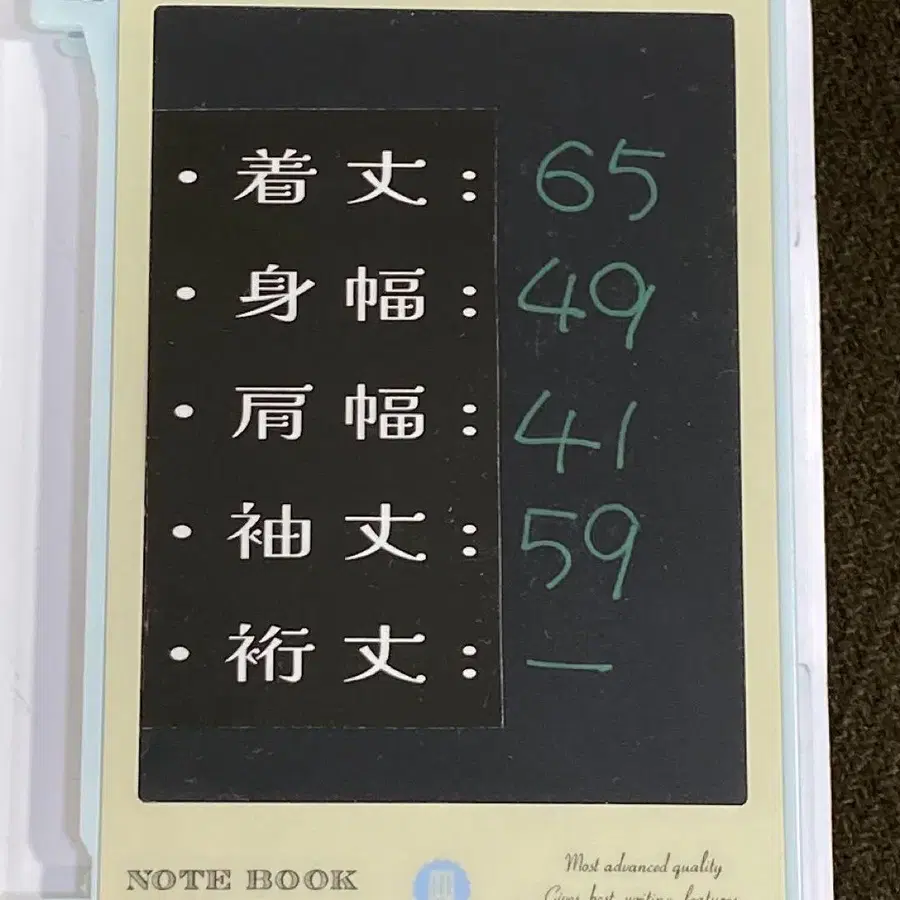 ・着丈: 65
・身幅: 49
・肩幅: 41
・袖丈: 59
・裄丈: —
NOTE BOOK
Most advanced quality
Gives best writing features